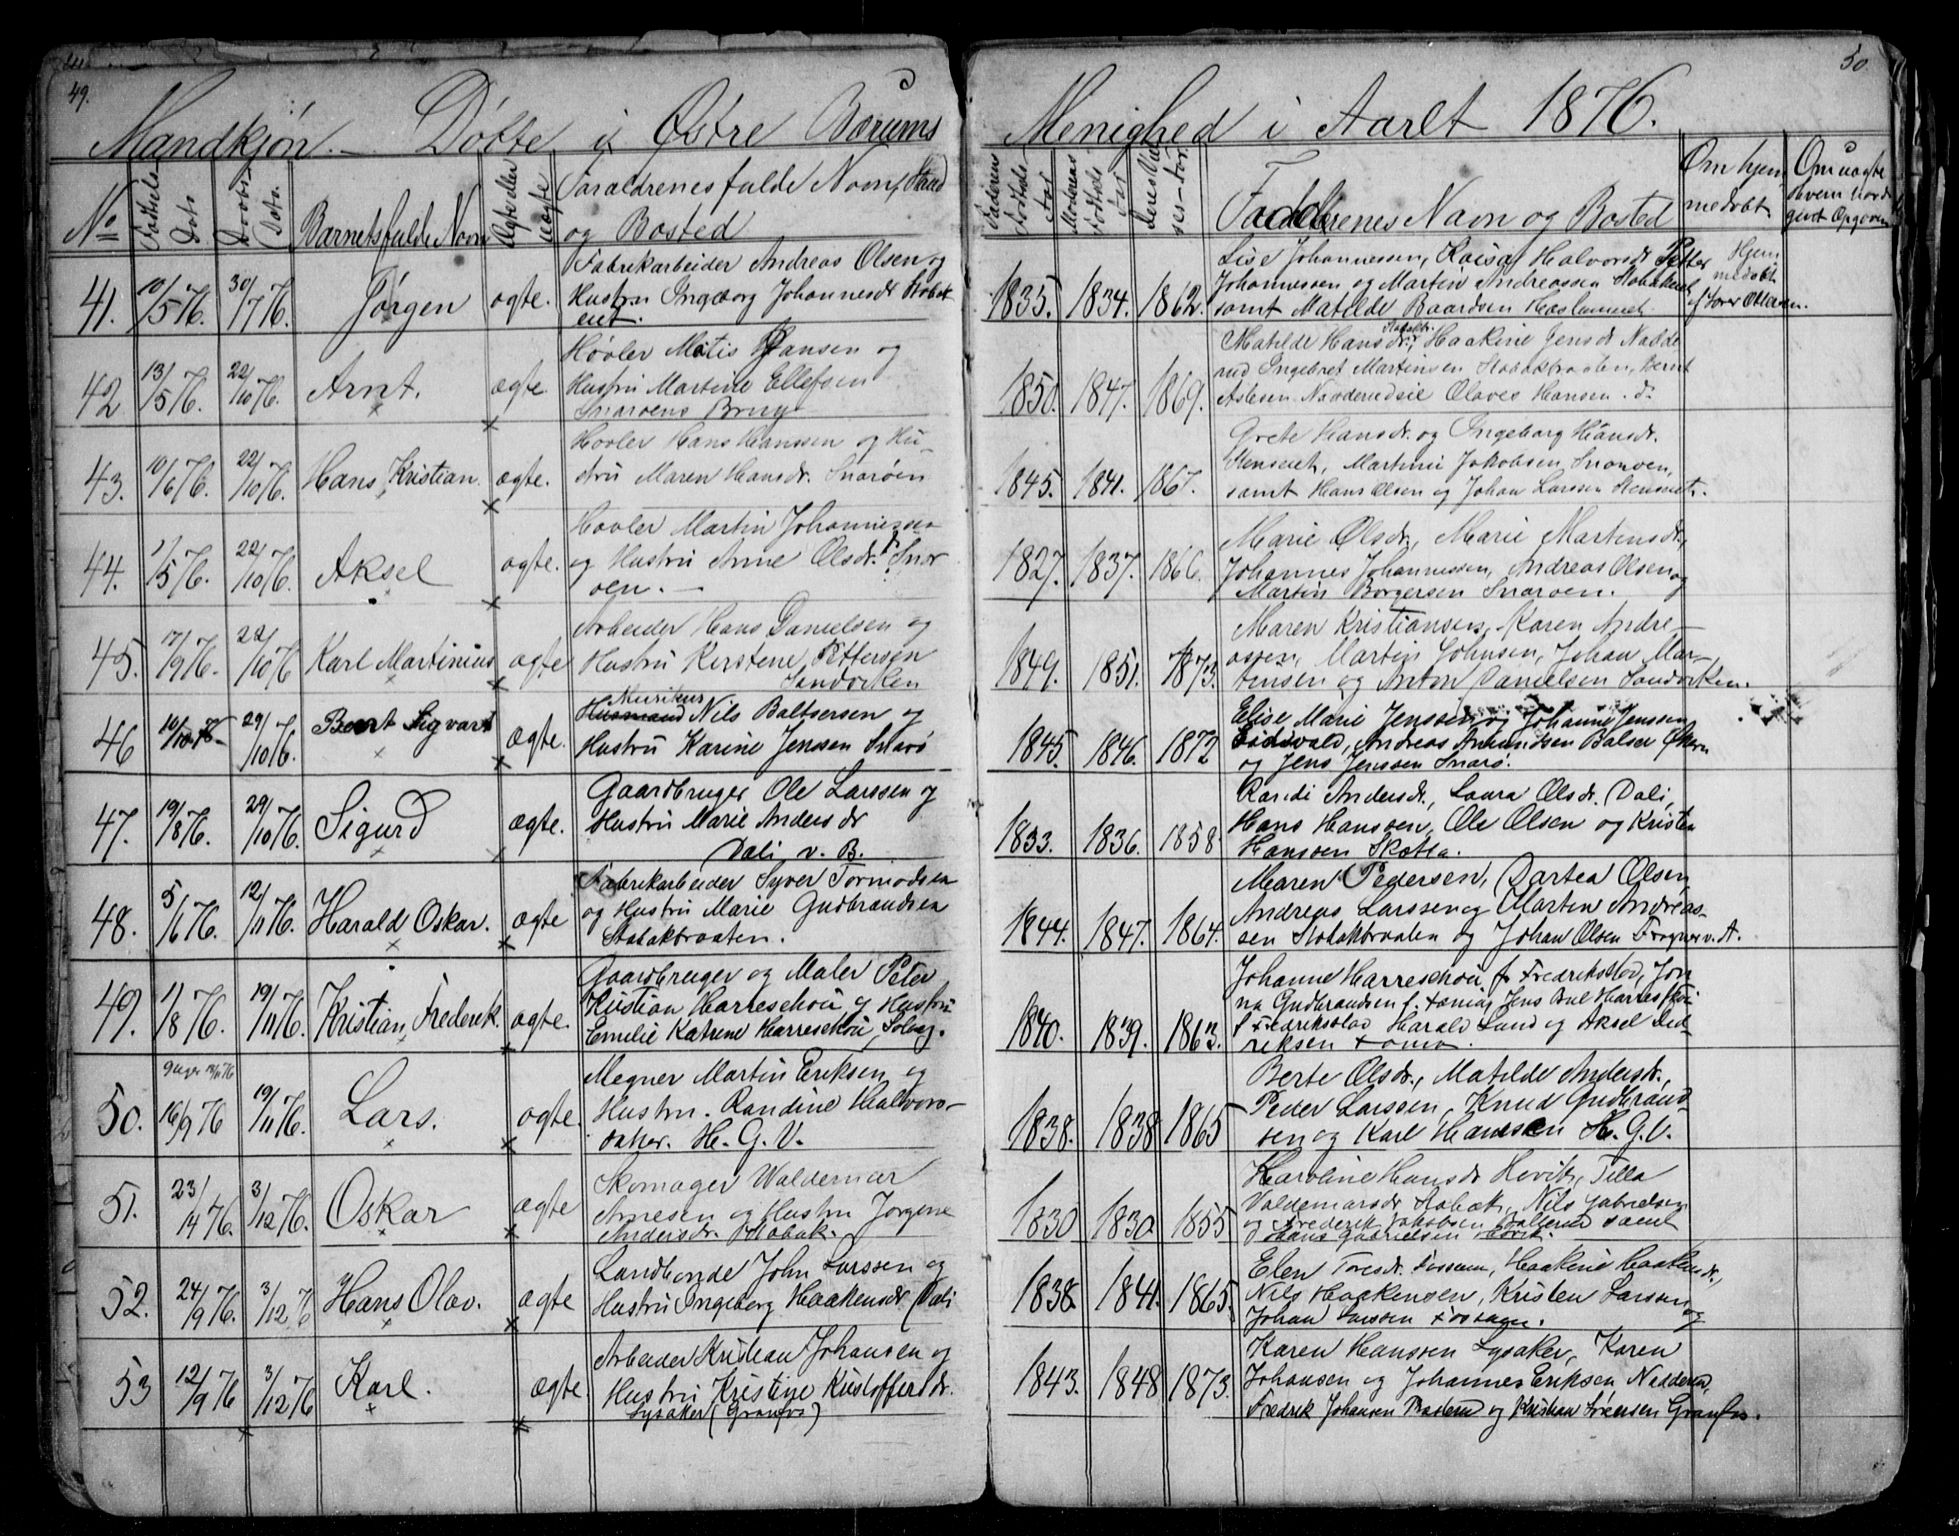 49.
50
Mandkjøn. Døbte i Østre Bærums
Menighed i Aaret 1876.
No
Fødsels Dato
Daabs Dato.
Barnets fulde Navn
Ægte eller uægte
Foraldrenes fulde Navn, Stand
og Bosted
Faderens Fødsels Aar
Moderens Fødsels Aar
Faddrenes Navn og Bosted
Om hjem
medøbt
Om uægte
hvem
41. 10/5 76. 30/7 76. Jørgen ægte.
Fabrikarbeider Andreas Olsen og
Hustru Ingeborg Johannesdr Stabæk
eiet.
1835. 1834. 1862.
Lise Johannessen, Kaisa Halvorsdr Petter
Johannessen og Martin Andreassen Stabækeiet
samt Matilde Baardsen Haslumeiet.
Hjem
medøbt
af
42. 13/5 76. 22/10 76. Arnt. ægte.
Høvler Matis Hansen og
Hustru Martine Ellefsen
Snarøens Brug
1850. 1847. 1869.
Matilde Hansdr, Haakine Jensdr Nadde
rud Ingebret Martinsen Stabækbraaten, Bernt
Aslesen Nadderudeie Olaves Hansen. d.
43. 10/6 76. 22/10 76. Hans Kristian. ægte.
Høvler Hans Hanssen og Hu-
stru Maren Hansdr. Snarøen
1845. 1841. 1867.
Grete Hansdr. og Ingeborg Hansdr.
Stenseiet, Martine Jakobsen Snarøen,
samt Hans Olsen og Johan Larsen Stenseiet.
44. 1/5 76. 22/10 76. Aksel ægte.
Høvler Martin Johannessen
og Hustru Anne Olsdr. Snar
øen.
1827. 1837. 1866.
Marie Olsdr, Marie Martinsdr,
Johannes Johannessen, Andreas Olsen og
Martin Børgersen Snarøen.
45. 17/9 76. 22/10 76 Karl Martinius ægte
Arbeider Hans Danielsen og
Hustru Kerstene Pettersen
Sandviken
1849. 1851. 1873.
Maren Kristiansen, Karen Andre-
assen, Martin Johnsen, Johan Mar-
tensen og Anton Danielsen Sandviken.
46 10/10 75 29/10 76. Bernt Sigvart ægte.
Murikus
Husmand Nils Baltsersen og
Hustru Karine Jenssen Snarø
1845. 1846. 1872
Elise Marie Jenssen og Johanne Jenssen
Eidsvold, Andreas Amundsen Balser Økern
og Jens Jenssen Snarø.
47. 19/8 76. 29/10 76. Sigurd ægte.
Gaardbruger Ole Larssen og
Hustru Marie Andersdr
Dali v. B.
1833. 1836. 1858
Randi Andersdr, Laura Olsdr. Dali,
Hans Hanssen, Ole Olsen og Kristen
Hanssen Skotta.
48. 5/6 76. 12/11 76. Harald Oskar. ægte
Fabrikarbeider Syver Tormodsen
og Hustru Marie Gudbrandsen
Stabækbraaten.
1844. 1847. 1864.
Maren Pedersen, Dartea Olsen,
Andreas Larssen og Marten Andreas-
sen Stabækbraaten og Johan Olsen Frogner v. A.
49. 11/8 76. 19/11 76. Kristian Frederik. ægte.
Gaardbruger og Maler Peter
Kristian Harreschou og Hustru
Emelie Katrine Harreschou, Solvig.
1840. 1839. 1863.
Johanne Harreschou fr Fredrikstad, Jon
na Gudbrandsen f. Jens Bul Harreschou
f Fredriksstad Harald Lund og Aksel Did-
riksen
50. 16/9 76 19/11 76. Lars. ægte
Megner Martin Eriksen og
Hustru. Randine Halvors-
datter. H. G. V.
1838. 1838 1865
Berte Olsdr., Matilde Andersdr,
Peder Larssen, Knud Gudbrand-
sen og Karl Hansen H. G. V.
51. 23/4 76. 3/12 76. Oskar ægte
Skomager Waldemar
Arnesen og Hustru Jørgine
Andersdr. Stabæk.
1830 1830 1855
Karoline Hansdr Høvik, Tilla
Valdemarsdr Stabæk, Nils Gabrielsen
og Frederik Jakobsen Ballerud samt
Johans Gabrielsen Høvik.
52. 24/9 76. 3/12 76 Hans Olav. ægte
Landhande John Larssen og
Hustru Ingeborg Haakensdr Dali
1838. 1841. 1865.
Elen Toresdr. Fossum, Haakine Haakensdr,
Nils Haakensen, Kristen Larssen og
Johan Larssen Fossum.
53 12/9 76 3/12 76 Karl. ægte
Arbeider Kristian Johansen og
Hustru Kristine Kristoffersdr.
Lysaker (Granfos)
1843. 1848 1873.
Karen Hanssen Lysaker, Karen
Johansen og Johannes Eriksen Nadderud,
Fredrik Johansen Ballerud og Kristian Sørensen Granfos.